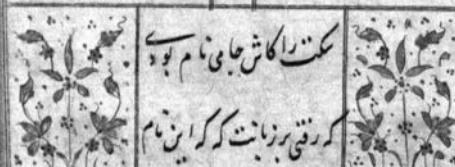 سکت را کاش جامی نام بودی
که رفتی بر زبانت که که این نام